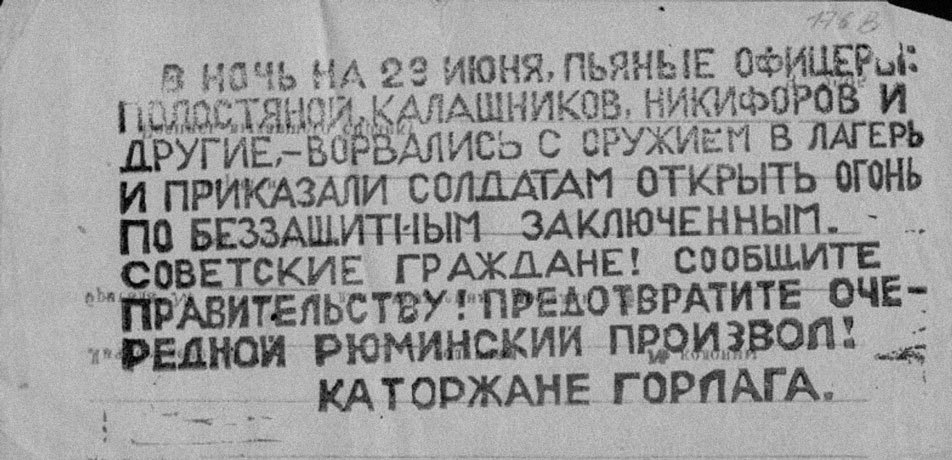 176 В
В НОЧЬ НА 23 ИЮНЯ, ПЬЯНЫЕ ОФИЦЕРЫ:
ПОЛОСТЯНОЙ, КАЛАШНИКОВ, НИКИФОРОВ И
ДРУГИЕ,–ВОРВАЛИСЬ С ОРУЖИЕМ В ЛАГЕРЬ
И ПРИКАЗАЛИ СОЛДАТАМ ОТКРЫТЬ ОГОНЬ
ПО БЕЗЗАЩИТНЫМ ЗАКЛЮЧЕННЫМ.
СОВЕТСКИЕ ГРАЖДАНЕ! СООБЩИТЕ
ПРАВИТЕЛЬСТВУ! ПРЕДОТВРАТИТЕ ОЧЕ–
РЕДНОЙ РЮМИНСКИЙ ПРОИЗВОЛ!
КАТОРЖАНЕ ГОРЛАГА.